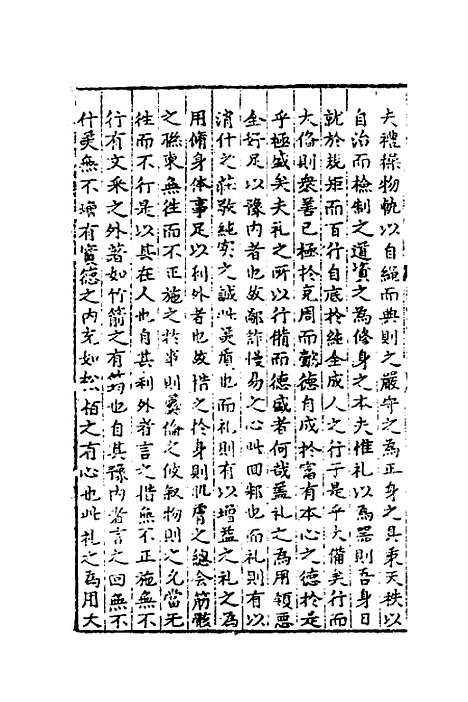 夫禮操物軌以自繩而典則之嚴守之為正身之具秉天秩以
自治而檢制之道資之為修身之本夫惟礼以為器則吾身日
就於規矩而百行自底於純全成人之行于是乎大備矣行而
大俻則衆善已極於充周而懿德自成於富有本心之德於是
乎極盛矣夫礼之所以行脩而德盛者何哉盖礼之為用領惡
全好足以豫內者也故鄙詐慢易之心此回邪也而礼則有以
消什之莊敬純实之誠此美質也而礼則有以增益之礼之為
用脩身体事足以利外者也故措之於身則肌膚之總会筋骸
之聮束無徃而不正施之於事則彛倫之攸叙物則之允當无
徃而不行是以其在人也自其利外者言之措無不正施無不
行有文采之外著如竹箭之有筠也自其豫內者言之回無不
什美無不增有實德之內充如松栢之有心也此礼之為用大